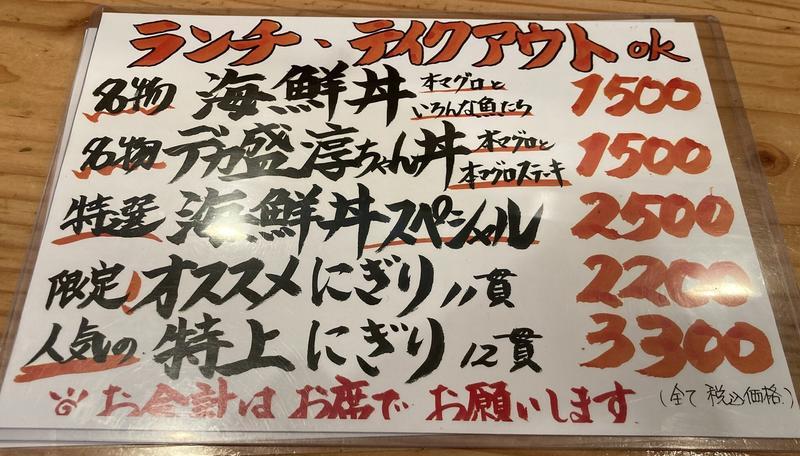 ランチ、テイクアウトok
名物 海鮮丼 本マグロと いろんな魚たち 1500
名物 デカ盛 淳ちゃん丼 本マグロと 本マグロステーキ 1500
特選 海鮮丼スペシャル 2500
限定 オススメにぎり 11貫 2200
人気の 特上にぎり 12貫 3300
※お会計はお席でお願いします (全て税込価格)